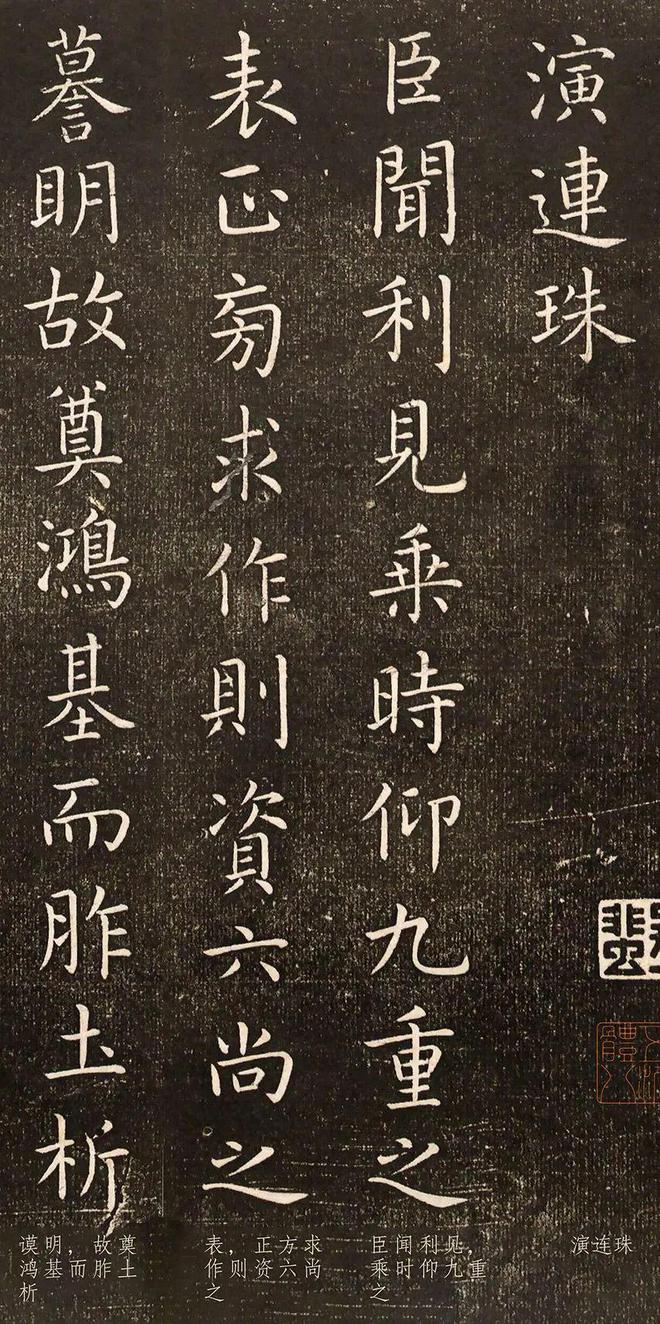 演連珠
臣聞利見乗時仰九重之
表正方求作則資六尚之
謩明故奠鴻基而胙土析
演连珠
臣闻利见，
乘时仰九重
之
表，正方求
作则资六尚
之
谟明，故奠
鸿基而胙土
析